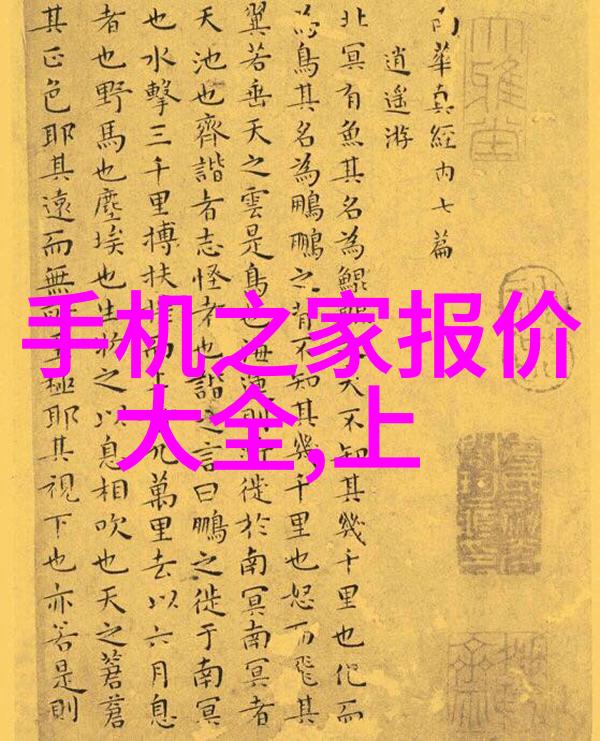 手机之家报价
大全,上
南華真經内七篇
逍遥游
北冥有魚其名為鯤大不知其幾千里也化而
為鳥其名為鵬鵬之背不知其幾千里也怒而飛其
翼若垂天之雲是鳥也海運則徙於南冥南冥者
天池也齊諧者志怪者也諧之言曰鵬之徙于南冥
也水擊三千里搏扶九萬里去以六月息
者也野馬也塵埃也生物之以息相吹也天之蒼蒼
其正色耶其遠而無極耶其視下也亦若是則